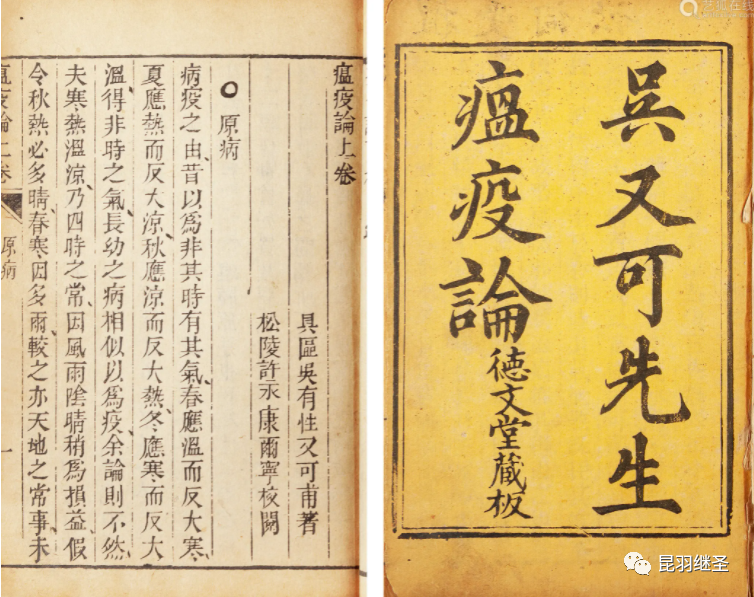 吳又可先生
瘟疫論
德文堂藏板
瘟疫論上卷
具區吳有性又可甫著
松陵許永康爾寧校閱
○原病
病疫之由、昔以爲非其時有其氣、春應溫而反大寒、
夏應熱而反大涼、秋應涼而反大熱、冬應寒而反大
溫、得非時之氣、長幼之病相似、以爲疫、余論則不然、
夫寒熱溫涼、乃四時之常、因風雨陰晴、稍爲損益、假
令秋熱必多晴、春寒因多雨、較之亦天地之常事、未
瘟疫論上卷
原病
一
昆羽继圣